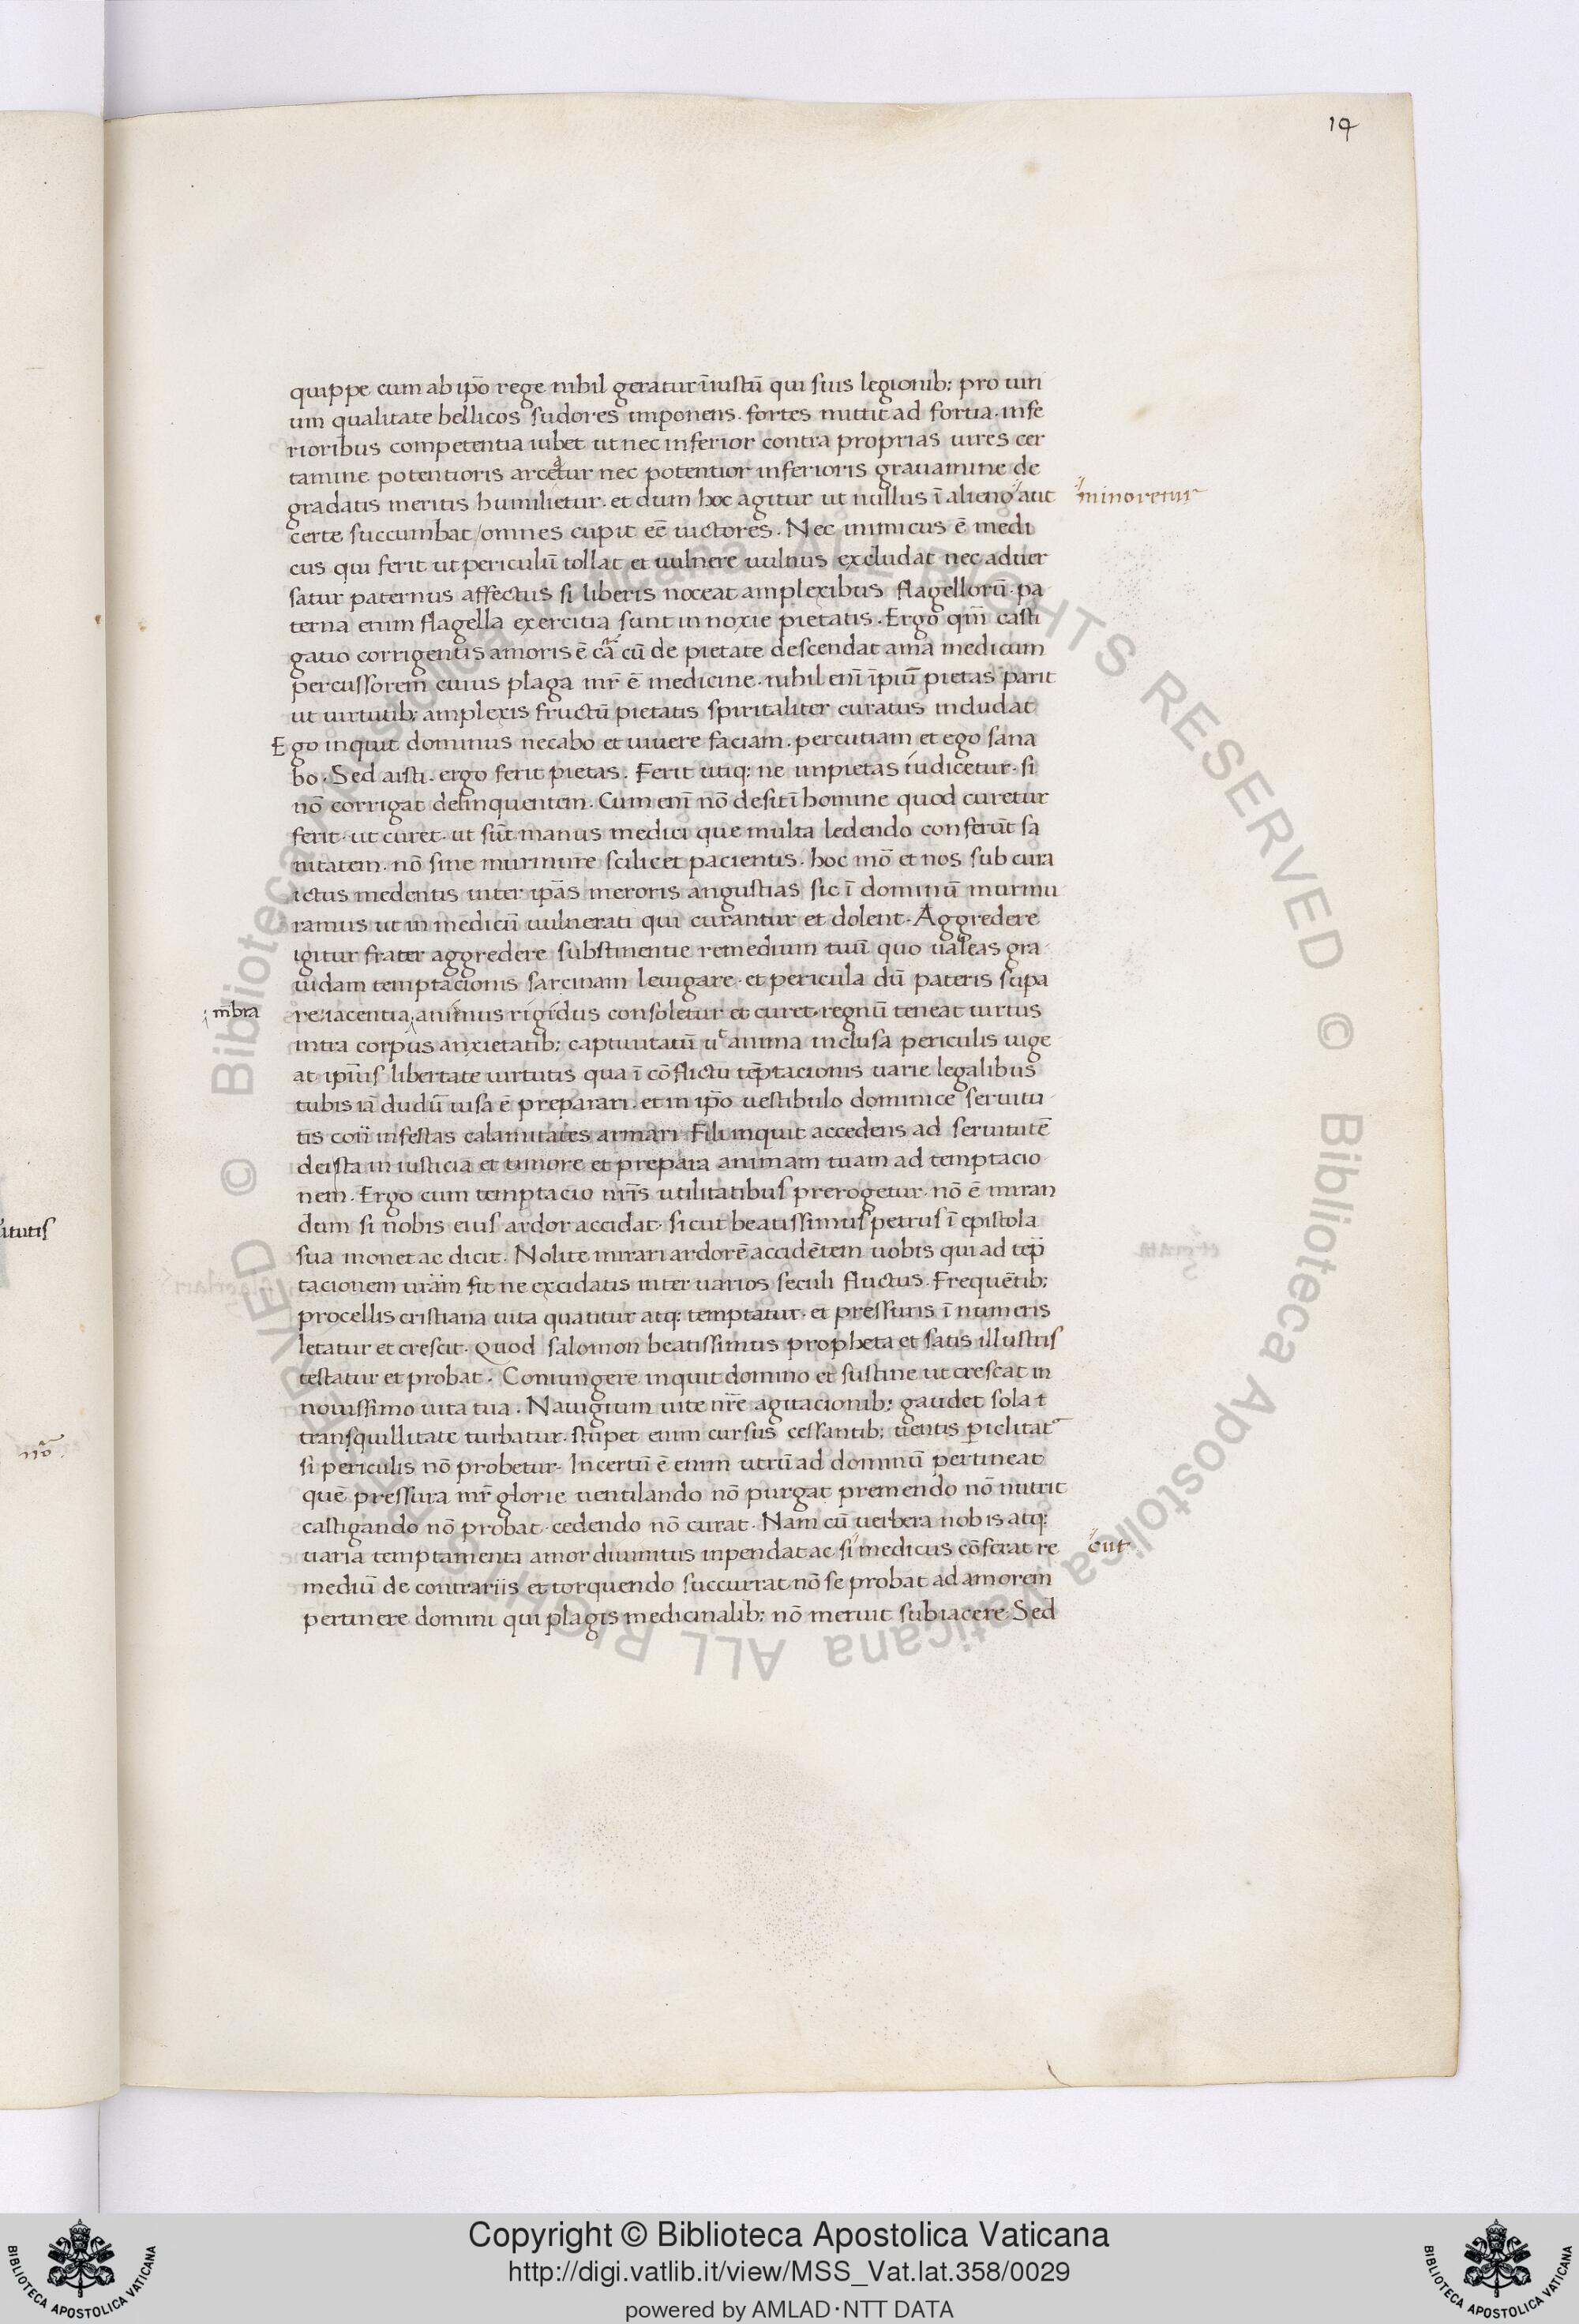 19
quippe cum ab ip̄o rege nihil geratur īiustū qui suis legionib; pro uiri
um qualitate bellicos sudores imponens. fortes mittit ad fortia. infe
rioribus competentia iubet ut nec inferior contra proprias uires cer
tamine potentioris arceatur nec potentior inferioris grauamine de
gradatis meritis humilietur. et dum hoc agitur ut nullus ī alieno aut minoretur
certe succumbat / omnes cupit eē uictores. Nec inimicus ē medi
cus qui ferit ut periculū tollat et uulnere uulnus excludat nec aduer
satur paternus affectus si liberis noceat amplexibus flagellorū. pa
terna enim flagella exercitia sunt innoxie pietatis. Ergo qm̄ casti
gatio corrigentis amoris ē cā cū de pietate descendat ama medicum
percussorem cuius plaga mr̄ ē medicine. nihil enī īpiū pietas parit
ut uirtutib; amplexis fructū pietatis spiritaliter curatus includat
Ego inquit dominus necabo et uiuere faciam. percutiam et ego sana
bo. Sed ergo ferit pietas. Ferit utiq: ne impietas iudicetur. si
nō corrigat delinquentem. Cum enī nō desit ī homine quod curetur
ferit. ut curet. ut sūt manus medici que multa ledendo conferūt sa
nitatem. nō sine murmure scilicet pacientis. hoc mō et nos sub cura
ictus medentis inter ip̄as meroris angustias sic ī dominū murmu
ramus ut in medicū uulnerati qui curantur et dolent. Aggredere
igitur frater aggredere substinentie remedium tuū quo ualeas gra
uidam temptacionis sarcinam leuigare. et pericula dū pateris supa
m̄bra re. iacentia animus rigidus consoletur et curet. regnū teneat uirtus
intra corpus anxietatib; captiuitatū uͨ anima inclusa periculis uige
at libertate uirtutis qua ī cōflictu tēptacionis uarie legalibus
tubis iā dudū iusa ē preparari. et in ip̄o uestibulo dominice seruitu
tis infestas calamitates armari. Fili inquit accedens ad seruitutē
dei sta in iusticia et timore et prepara animam tuam ad temptacio
nem. Ergo cum temptacio nr̄is utilitatibus prerogetur. nō ē miran
dum si nobis eius ardor accidat. sicut beatissimus petrus ī epistola
sua monet ac dicit. Nolite mirari ardorē accidētem uobis qui ad tep̄
tacionem ur̄am fit ne excidatis inter uarios seculi fluctus. Frequētib;
procellis cristiana uita quatitur atq: temptatur. et pressuris īnumeris
letatur et crescit. Quod salomon beatissimus propheta et satis illustris
testatur et probat. Coniungere inquit domino et sustine ut crescat in
nouissimo uita tua. Nauigium uite nr̄e agitacionib; gaudet sola ī
transquillitate turbatur. stupet enim cursus cessantib; uentis periclitat᷑
si periculis nō probetur. Incertū ē enim utrū ad dominū pertineat
quē pressura mr̄ glorie uentilando nō purgat premendo nō nutrit
castigando nō probat. cedendo nō curat. Nam cū uerbera nobis atq:
uaria temptamenta amor diuinitus inpendat. ac si medicus cōferat re cut
mediū de contrariis et torquendo succurrat nō se probat ad amorem
pertinere domini qui plagis medicinalib; nō meruit subiacere. Sed
Copyright © Biblioteca Apostolica Vaticana
http://digi.vatlib.it/view/MSS_Vat.lat.358/0029
powered by AMLAD·NTT DATA